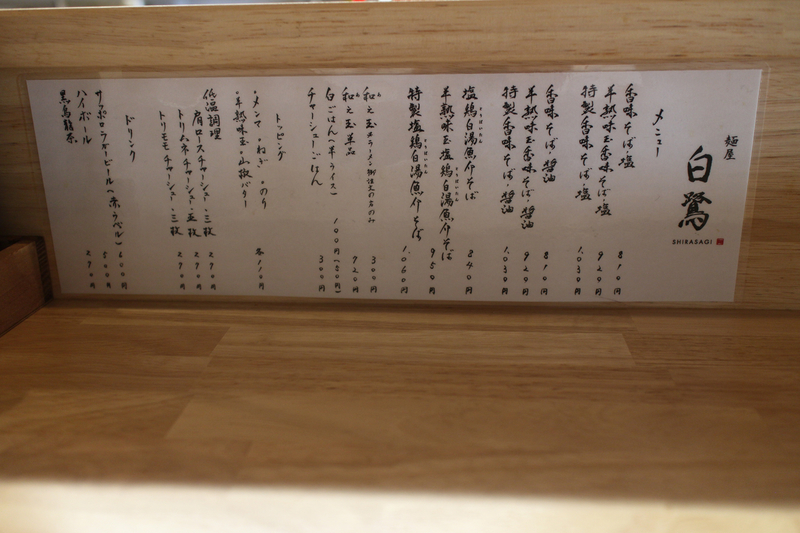 麺屋
白鷺
SHIRASAGI
メニュー
香味そば・塩 810円
半熟味玉香味そば・塩 920円
特製香味そば・塩 1,030円
香味そば・醤油 810円
半熟味玉香味そば・醤油 920円
特製香味そば・醤油 1,030円
塩鶏白湯魚介そば 840円
半熟味玉塩鶏白湯魚介そば 950円
特製塩鶏白湯魚介そば 1,060円
和え玉 ※ラーメン御注文の方のみ 300円
和え玉単品 920円
白ごはん(半ライス) 100円(50円)
チャーシューごはん 300円
トッピング
・メンマ・ねぎ・のり
・半熟味玉・山椒バター 各110円
低温調理
肩ロースチャーシュー・三枚 290円
トリムネチャーシュー・五枚 290円
トリモモチャーシュー・三枚 290円
ドリンク
サッポロラガービール(赤ラベル) 600円
ハイボール 500円
黒烏龍茶 290円